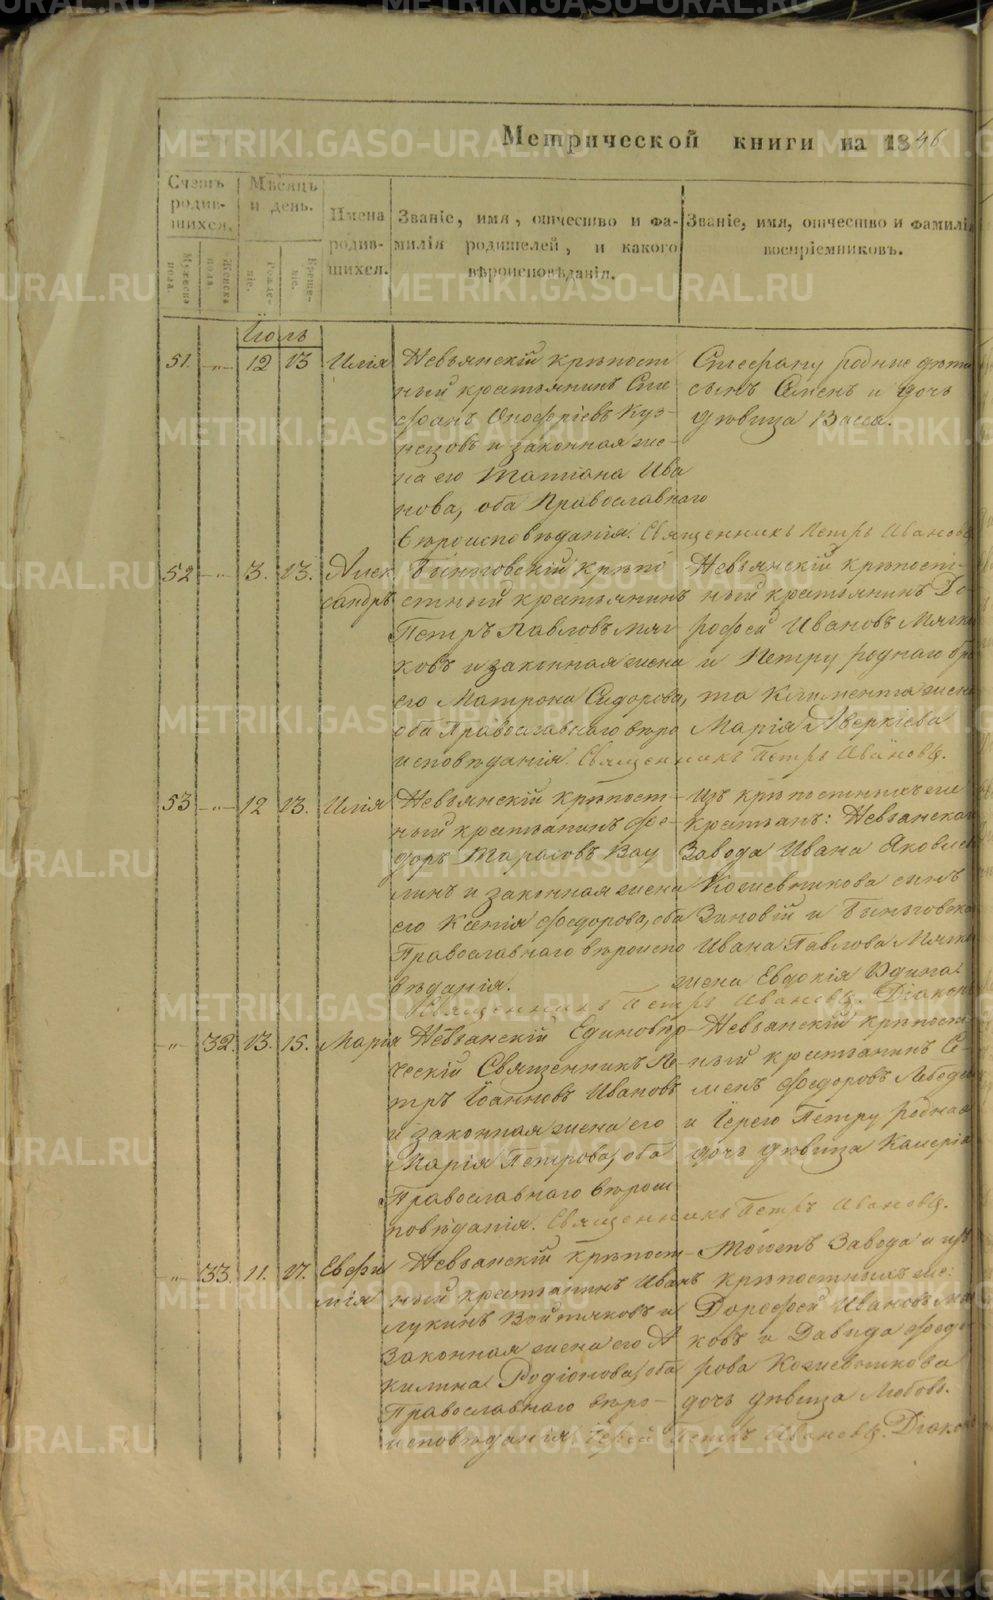 Метрической книги на 1846
Счетъ родив-шихся.
Мѣсяцъ и день.
Имена родив-шихся.
Званіе, имя, отчество и фа-милія родителей, и какого вѣроисповѣданія.
Званіе, имя, отчество и фамилія воспріемниковъ.
Мужеска пола.
Женска пола
Рожде-нія.
Креще-нія.
Іюль
51. -„- 12 13 Илія
Невьянскій крѣпост
ный крестьянинъ Сте
фанъ Онофріевъ Куз-
нецовъ и законная же-
на его Татіана Ива
нова, оба Православнаго
вѣроисповѣданія. Священникъ Петръ Ивановъ
Стефану родные дѣти
сынъ Семенъ и дочь
дѣвица Васса.
52 -„- 3. 13. Алек
сандръ
Быньговскій крѣпо
стный крестьянинъ
Петръ Павловъ Мяг
ковъ и законная жена
его Матрона Сидорова,
оба Православнаго вѣро
исповѣданія. Священникъ Петръ Ивановъ.
Невьянскій крѣпост-
ный крестьянинъ До-
рофей Ивановъ Мягко
и Петру роднаго бра
та Климента жена
Марія Аверкіева
53 -„- 12 13. Илія
Невьянскій крѣпост-
ный крестьянинъ Фе-
доръ Тарасовъ Вау
линъ и законная жена
его Ксенія Федорова, оба
Православнаго вѣроиспо
вѣданія.
Изъ крѣпостныхъ же
крестьянъ: Невьянскаго
Завода Ивана Яковлева
Кожевникова сынъ
Зиновій и Быньговска
Ивана Павлова Мягко
жена Евдокія
Священникъ Петръ Ивановъ. Діаконъ
-„- 32. 13. 15. Марія
Невьянскій Единовѣр-
ческій Священникъ Пе
тръ Іоанновъ Ивановъ
и законная жена его
Марія Петрова, оба
Православнаго вѣрои
повѣданія. Священникъ Петръ Ивановъ.
Невьянскій крѣпост
ный крестьянинъ Се
менъ Федоровъ Лебеде
и Іерею Петру родная
дочь дѣвица Калерія
-„- 33. 11. 17. Евфи
мія
Невьянскій крѣпост-
ный крестьянинъ Иванъ
Лукинъ Войтяковъ и
законная жена его А
килина Родіонова, оба
Православнаго вѣро-
исповѣданія. Іерей Петръ Ивановъ. Діако
Тогожъ Завода и изъ
крѣпостныхъ же:
Дорофей Ивановъ Мяг
ковъ и Давида Федо
рова Кожевникова
дочь дѣвица Любовь.
METRIKI.GASO-URAL.RU